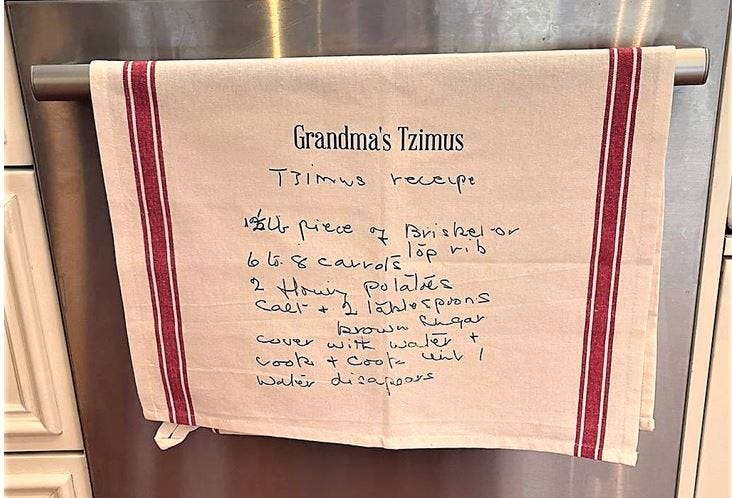 Grandma's Tzimus
Tzimus receipe
1½ lb piece of Brisket or
Top rib
6 to 8 carrots
2 potatoes
salt + 2 tablespoons
brown sugar
cover with water +
cook + cook until
water disapears